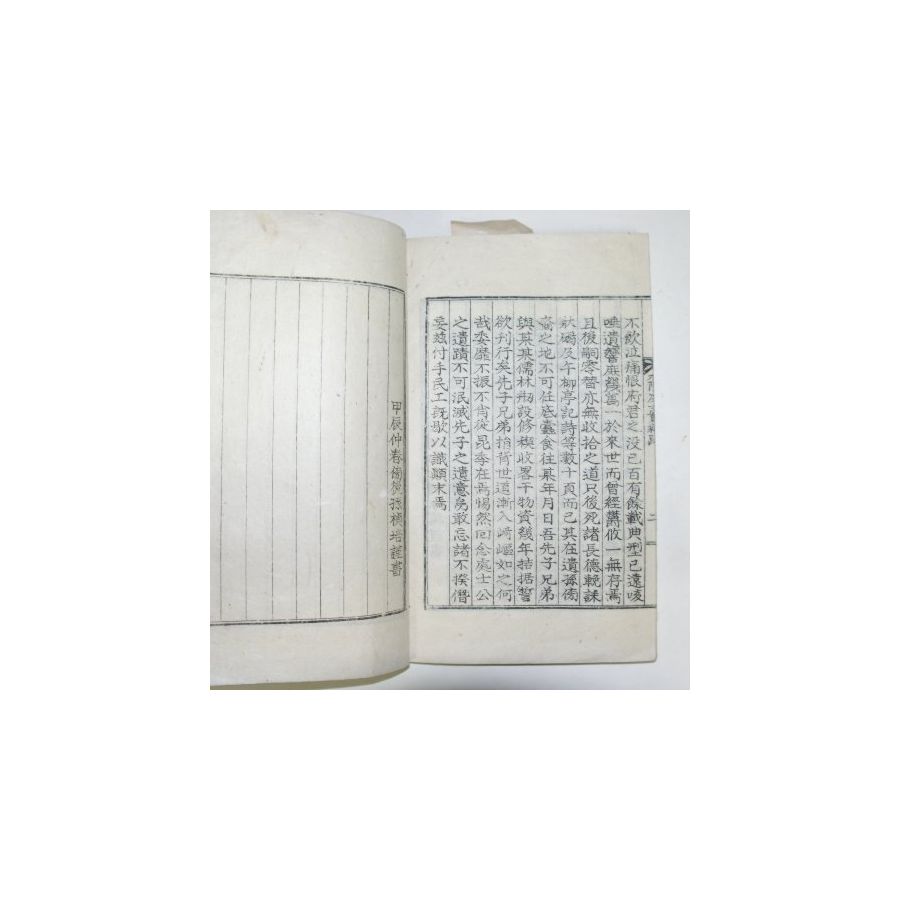 不飮泣痛恨府君之沒已百有餘載典型已遠咳
唾遺馨庶幾焉一於來世而曾經鬱攸一無存焉
且後嗣零替亦無收拾之道只後死諸長德輓誄
狀碣及午柳亭記詩等數十頁而已其在遺孫傍
裔之地不可任底蠹食往某年月日吾先子兄弟
與某某儒林刱設修稧收畧干物資幾年拮据誓
欲刊行矣先子兄弟捐背世道漸入崎嶇如之何
哉委靡不振不肖從昆季在焉惕然回念處士公
之遺蹟不可泯滅先子之遺意焉敢忘諸不揆僭
妄玆付手民工旣歇以識顚末焉
甲辰仲春傍孫謹書